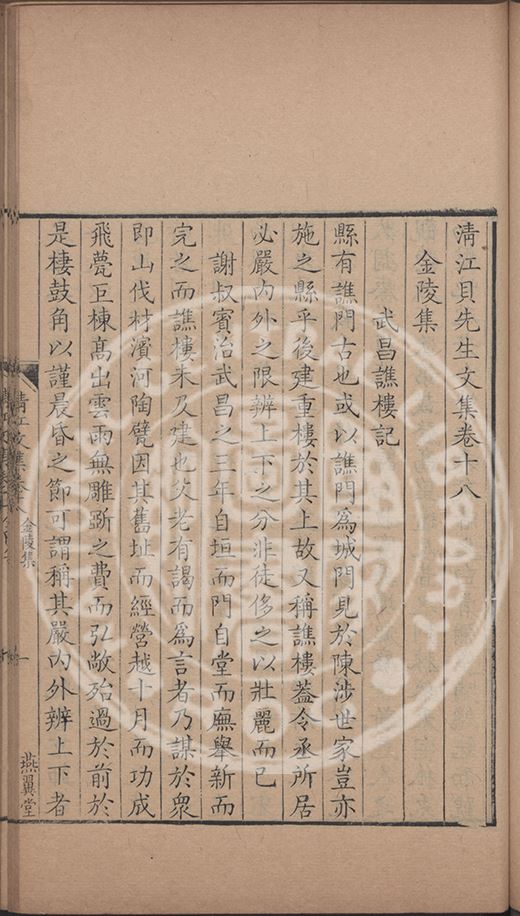 清江貝先生文集卷十八
金陵集
武昌譙樓記
縣有譙門古也或以譙門爲城門見於陳涉世家豈亦
施之縣乎後建重樓於其上故又稱譙樓葢令丞所居
必嚴內外之限辨上下之分非徒侈之以壯麗而已
謝叔賓治武昌之三年自垣而門自堂而廡舉新而
完之而譙樓未及建也父老有謁而爲言者乃謀於衆
即山伐材濱河陶甓因其舊址而經營越十月而功成
飛甍巨棟高出雲雨無雕斲之費而弘敞殆過於前於
是棲鼓角以謹晨昏之節可謂稱其嚴內外辨上下者
清江文集卷十八
金陵集
一
燕翼堂